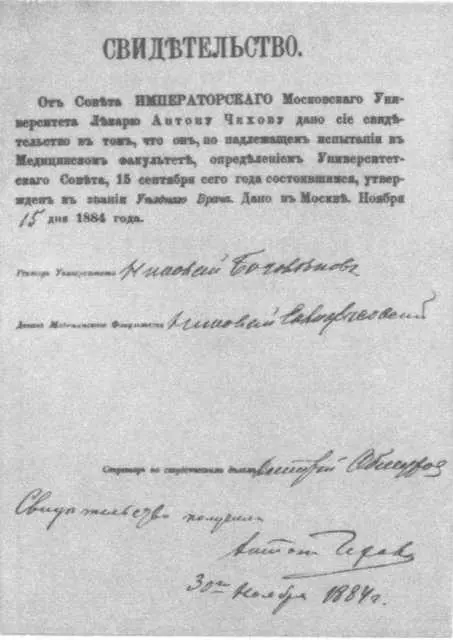 СВИДѢТЕЛЬСТВО.
Отъ Совѣта ИМПЕРАТОРСКАГО Московскаго Уни-
верситета Лѣкарю Антону Чехову дано сіе свидѣ-
тельство въ томъ, что онъ, по надлежащемъ испытаніи въ
Медицинскомъ факультетѣ, опредѣленіемъ Университет-
скаго Совѣта, 15 сентября сего года состоявшимся, утвер-
жденъ въ званіи Уѣзднаго Врача. Дано въ Москвѣ. Ноября
15 дня 1884 года.
Ректоръ Университета Николай
Деканъ Медицинскаго Факультета Николай
Секретарь по студенческимъ дѣламъ
Свидѣтельство получилъ
Антонъ Чехов
30го Ноября 1884 г.